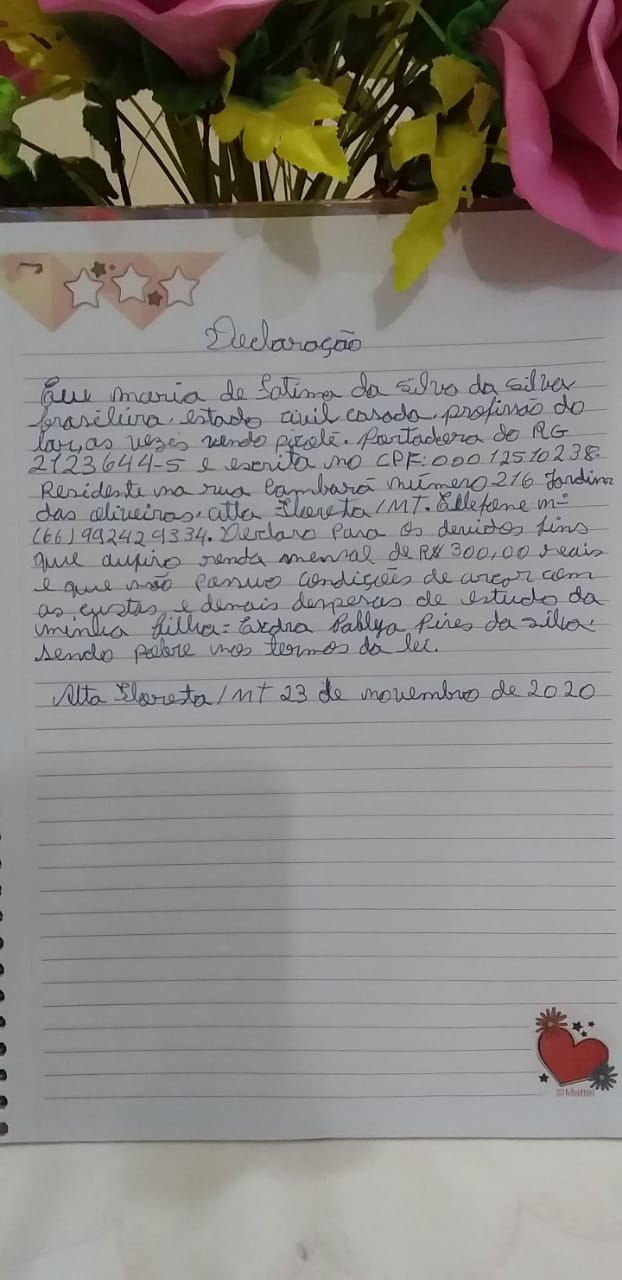 Declaração
Eue maria de Fatima da silva da silva
brasileira, estado civil casada, profissão do
lar, as vezes vendo picolé. Portadora do RG
2123644-5 e escrita no CPF: 00012510238.
Residente na rua Cambará número 216 Jardim
das oliveiras, alta Floresta/MT. Telefone nº
(66) 992429334. Declaro Para os devidos fins
que aufiro renda mensal de R$ 300,00 reais
e que não Possuo condições de arcar com
as custas e demais despesas de estudo da
minha filha: Pablya Pires da silva.
sendo pobre nos termos da lei.
Alta Floresta/MT 23 de novembro de 2020
©Mattel